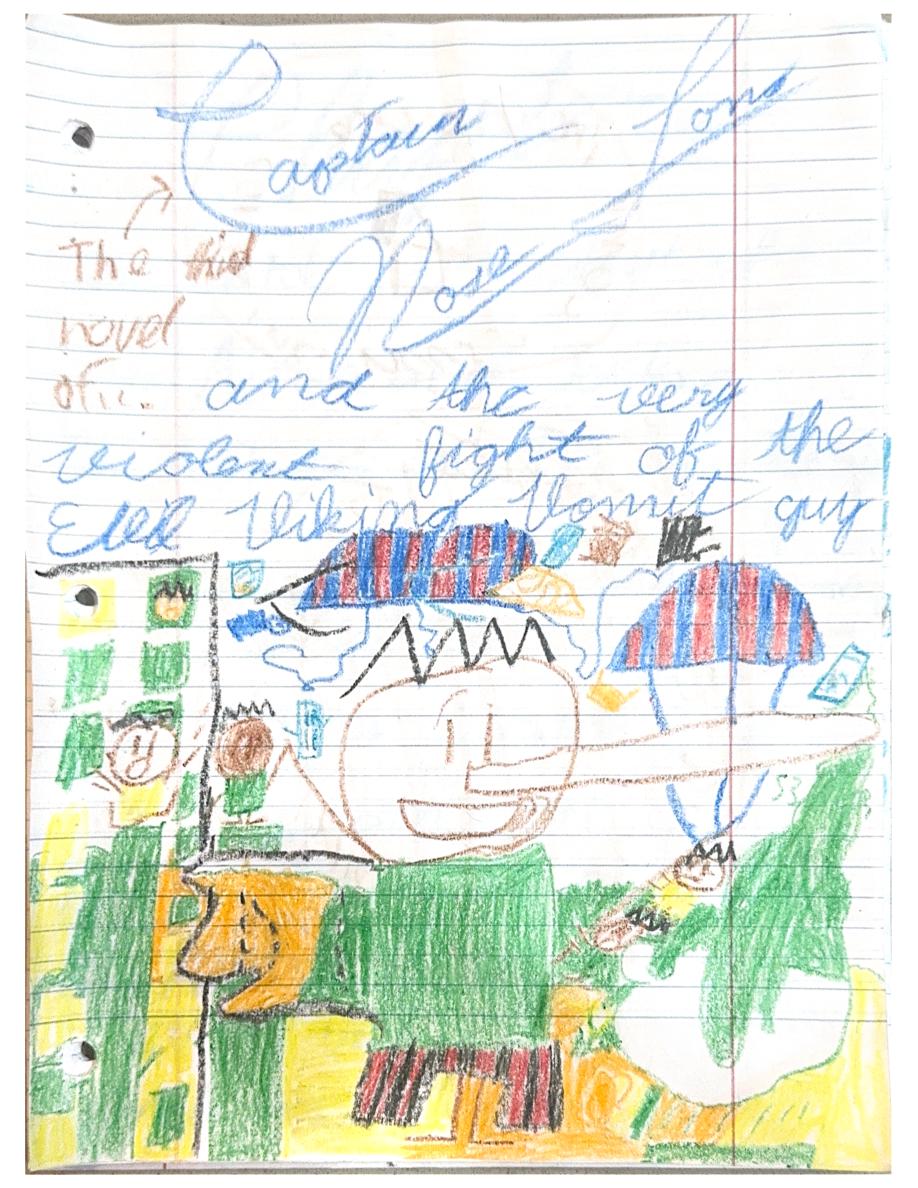 Captain Long
Nose
The
novel
of...
and the very
violent fight of the
Evil Viking Vomit guy